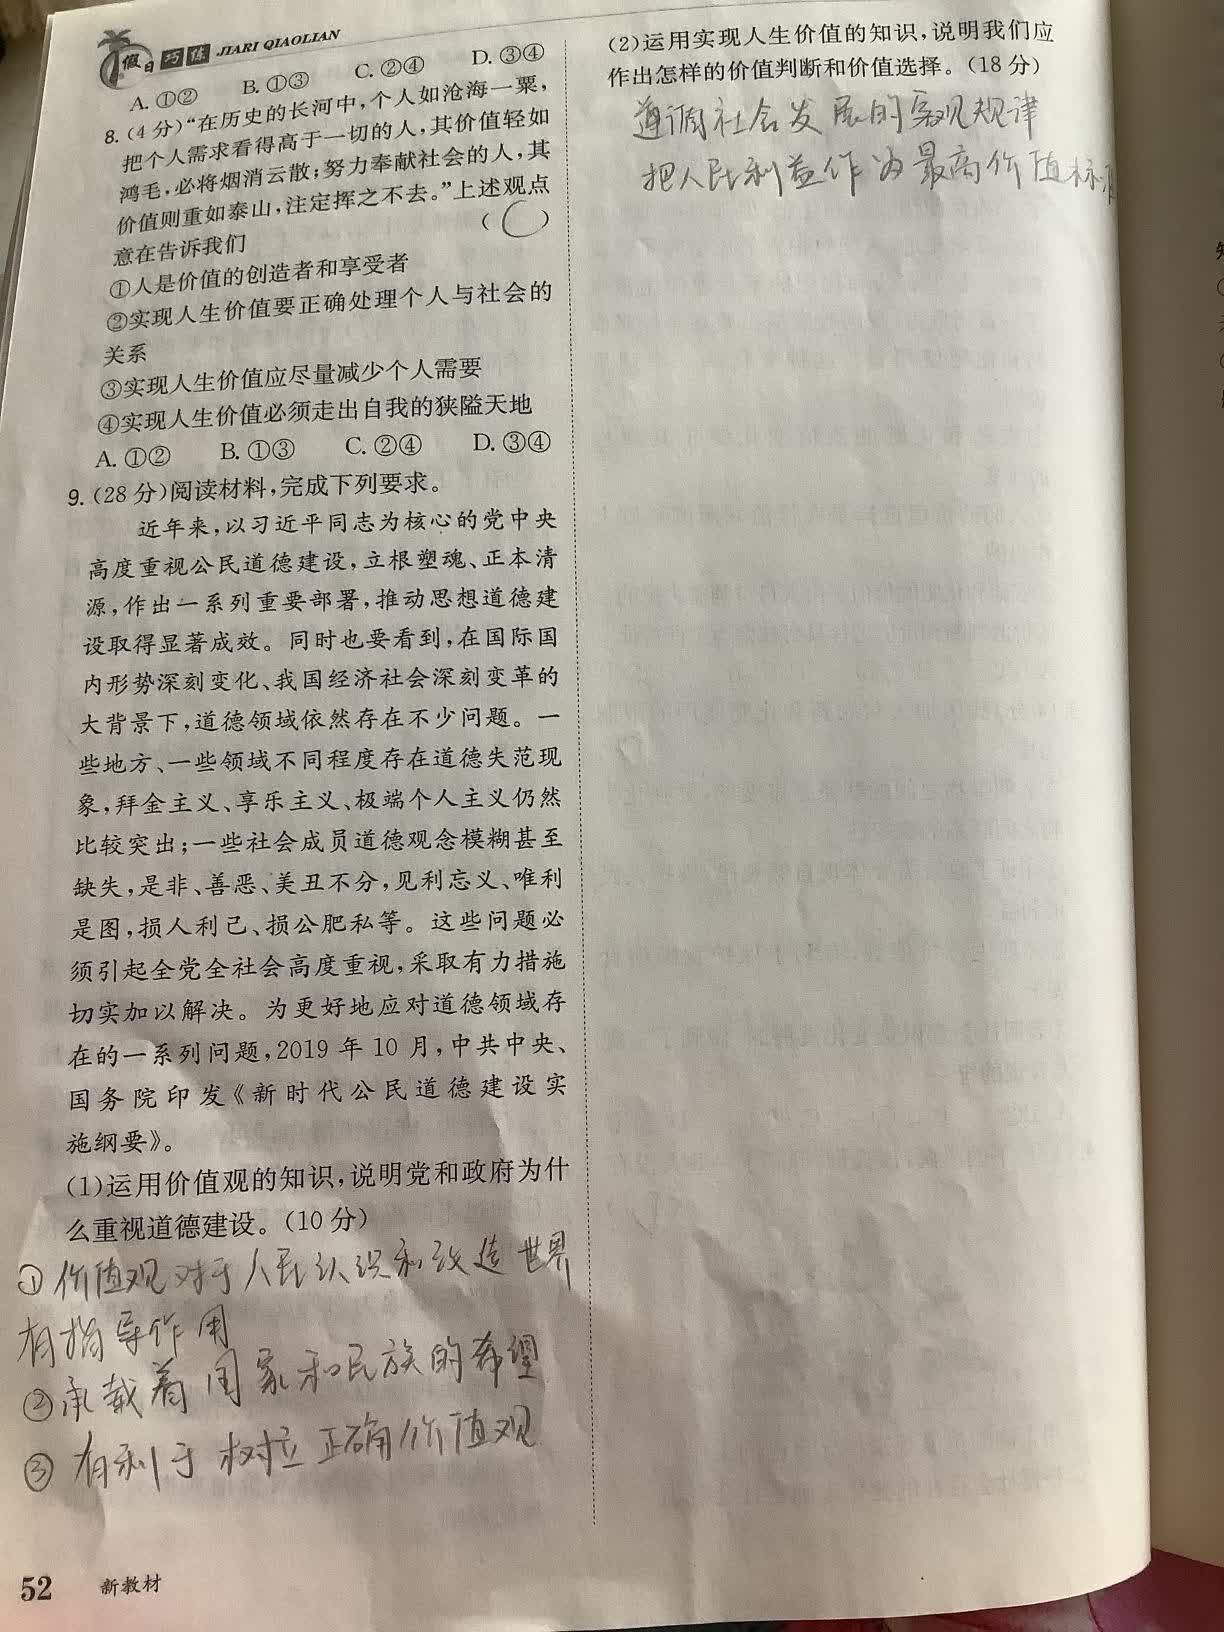 假日巧练 JIARI QIAOLIAN
A. ①② B. ①③ C. ②④ D. ③④
8. (4分)“在历史的长河中,个人如沧海一粟,
把个人需求看得高于一切的人,其价值轻如
鸿毛,必将烟消云散;努力奉献社会的人,其
价值则重如泰山,注定挥之不去。”上述观点
意在告诉我们 (C)
①人是价值的创造者和享受者
②实现人生价值要正确处理个人与社会的
关系
③实现人生价值应尽量减少个人需要
④实现人生价值必须走出自我的狭隘天地
A. ①② B. ①③ C. ②④ D. ③④
9. (28分)阅读材料,完成下列要求。
近年来,以习近平同志为核心的党中央
高度重视公民道德建设,立根塑魂、正本清
源,作出一系列重要部署,推动思想道德建
设取得显著成效。同时也要看到,在国际国
内形势深刻变化、我国经济社会深刻变革的
大背景下,道德领域依然存在不少问题。一
些地方、一些领域不同程度存在道德失范现
象,拜金主义、享乐主义、极端个人主义仍然
比较突出;一些社会成员道德观念模糊甚至
缺失,是非、善恶、美丑不分,见利忘义、唯利
是图,损人利己、损公肥私等。这些问题必
须引起全党全社会高度重视,采取有力措施
切实加以解决。为更好地应对道德领域存
在的一系列问题,2019年10月,中共中央、
国务院印发《新时代公民道德建设实
施纲要》。
(1)运用价值观的知识,说明党和政府为什
么重视道德建设。(10分)
①价值观对于人民认识和改造世界
有指导作用
②承载着国家和民族的希望
③有利于树立正确价值观
52 新教材
(2)运用实现人生价值的知识,说明我们应
作出怎样的价值判断和价值选择。(18分)
社会发展的客观规律
把人民利益作为最高价值标准